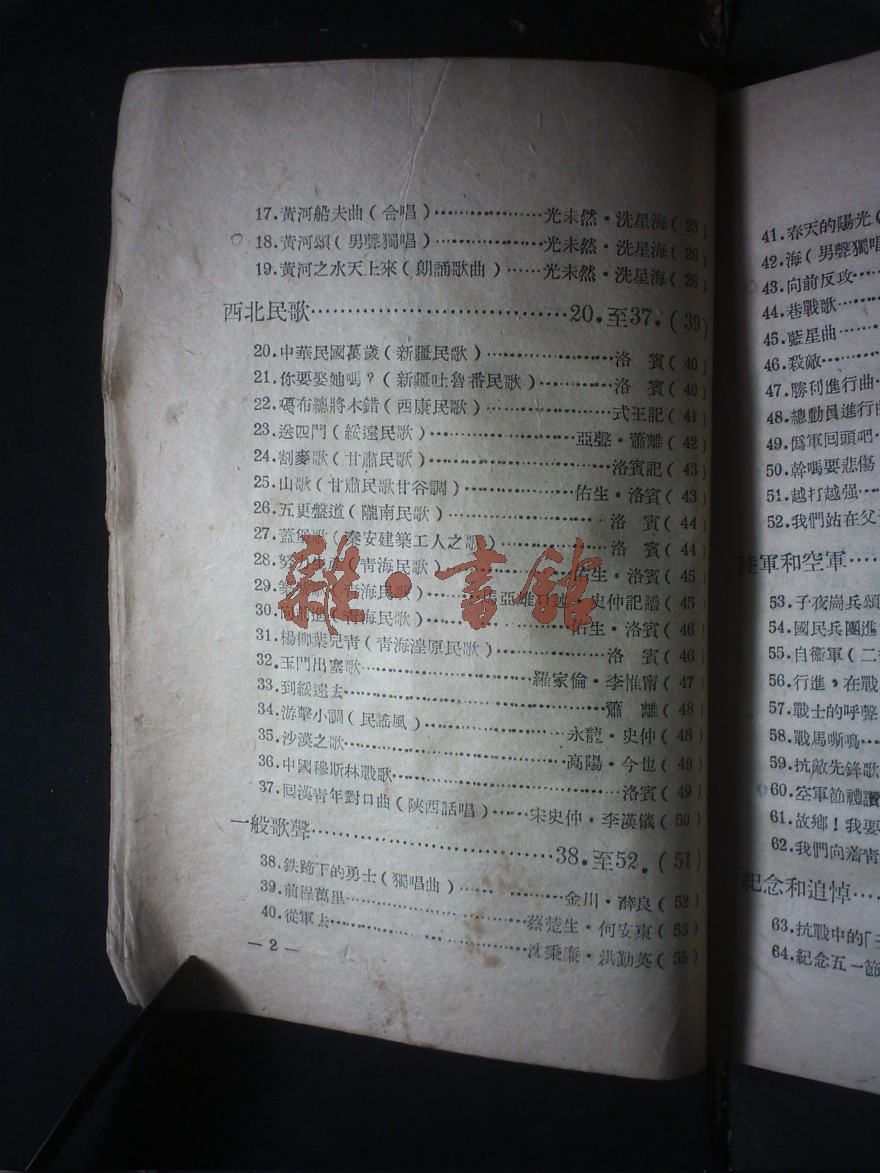 17.黃河船夫曲(合唱)………………光未然·洗星海(23)
18.黃河頌(男聲獨唱)………………光未然·洗星海(26)
19.黃河之水天上來(朗誦歌曲)……光未然·洗星海(26)
西北民歌………………………………20.至37.(39)
20.中華民國萬歲(新疆民歌)………………洛 賓(40)
21.你要娶她嗎?(新疆吐魯番民歌)…………洛 賓(40)
22.噶布總將木錯(西康民歌)………………式王記(41)
23.送四門(綏遠民歌)………………亞聲·蕭離(42)
24.割麥歌(甘肅民歌)………………………洛賓記(43)
25.山歌(甘肅民歌甘谷調)……………佑生·洛賓(43)
26.五更盤道(隴南民歌)……………………洛 賓(44)
27.蓋堡歌(秦安建築工人之歌)……………洛 賓(44)
28.努力生產(青海民歌)………………佑生·洛賓(45)
29. 青海民歌)………馬亞雄 述·史仲記譜(45)
30.向前進(青海民歌)………………佑生·洛賓(46)
31.楊柳葉兒靑(靑海湟原民歌)……………洛 賓(46)
32.玉門出塞歌…………………………羅家倫·李惟甯(47)
33.到綏遠去………………………………………蕭 離(48)
34.游擊小調(民謠風)…………………永龍·史仲(48)
35.沙漠之歌………………………………高陽·今也(49)
36.中國穆斯林戰歌……………………………洛賓(49)
37.回漢靑年對口曲(陝西話唱)……宋史仲·李漢儀(50)
一般歌聲………………………………38.至52.(51)
38.鉄蹄下的勇士(獨唱曲)………………金川·薛良(52)
39.前程萬里………………………………蔡楚生·何安東(53)
40.從軍去…………………………………沈秉廉·洪勤英(55)
— 2 —
雜·書館
41.春天的陽光(
42.海(男聲獨唱
43.向前反攻……
44.巷戰歌………
45.藍星曲………
46.殺敵…………
47.勝利進行曲·
48.總動員進行曲
49.爲軍回頭吧·
50.幹嗎要悲傷
51.越打越强……
52.我們站在父
陸軍和空軍……
53.子夜崗兵頌
54.國民兵團進
55.自衞軍(二
56.行進,在戰
57.戰士的呼聲
58.戰馬嘶鳴…
59.抗敵先鋒歌
60.空軍節禮讚
61.故鄉!我要
62.我們向着靑
紀念和追悼……
63.抗戰中的「
64.紀念五一節